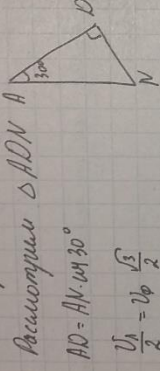 Рассмотрим △ADN
A
30°
D
N
AD = AN · 30°
U₁/2 = U₀ √3/2